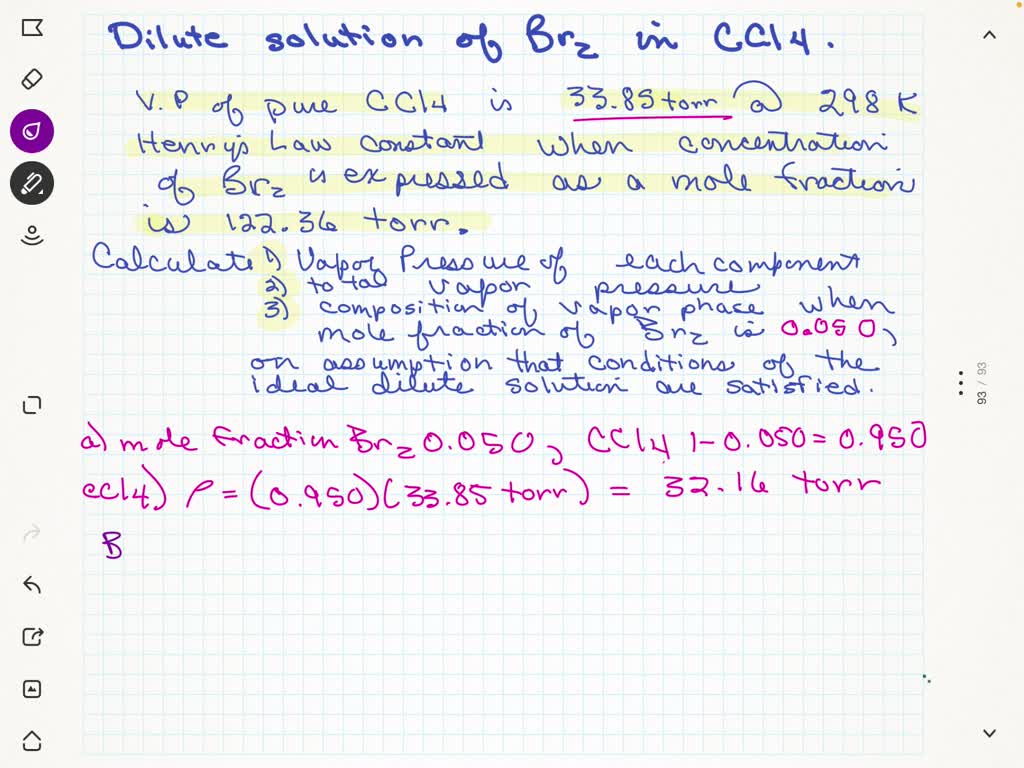 Dilute solution of Br2 in CCl4.
V.P of pure CCl4 is 33.85 torr @ 298 K
Henry's Law constant when concentration
of Br2 is expressed as a mole fraction
is 122.36 torr.
Calculate 1) Vapor Pressure of each component
2) total vapor pressure
3) composition of vapor phase when
mole fraction of Br2 is 0.050,
on assumption that conditions of the
ideal dilute solution are satisfied.
a) mole fraction Br2 0.050, CCl4 1-0.050=0.950
CCl4) P=(0.950)(33.85 torr) = 32.16 torr
B
93 / 93